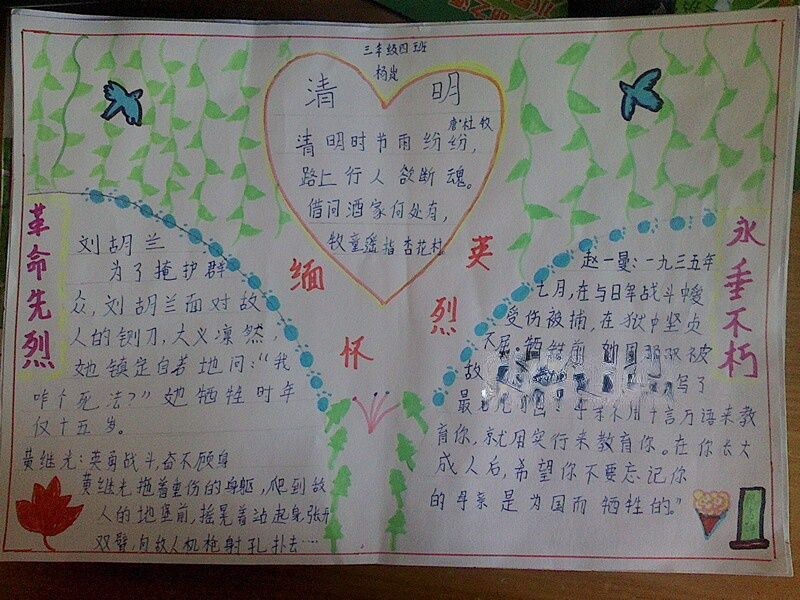 三年级四班
杨岚
清明
唐·杜牧
清明时节雨纷纷，
路上行人欲断魂。
借问酒家何处有，
牧童遥指杏花村
缅怀英烈
革命先烈
永垂不朽
刘胡兰
为了掩护群
众，刘胡兰面对敌
人的铡刀，大义凛然，
她镇定自若地问：“我
咋个死法？”她牺牲时年
仅十五岁。
黄继光：英勇战斗，奋不顾身
黄继光拖着重伤的身躯，爬到敌
人的地堡前，摇晃着站起身，张开
双臂，向敌人机枪射孔扑去…
赵一曼：一九三五年
七月，在与日军战斗中
受伤被捕，在狱中坚贞
不屈。牺牲前
故 写了
最
不用千言万语来教
育你，就用实行来教育你。在你长大
成人后，希望你不要忘记你
的母亲是为国而牺牲的。”